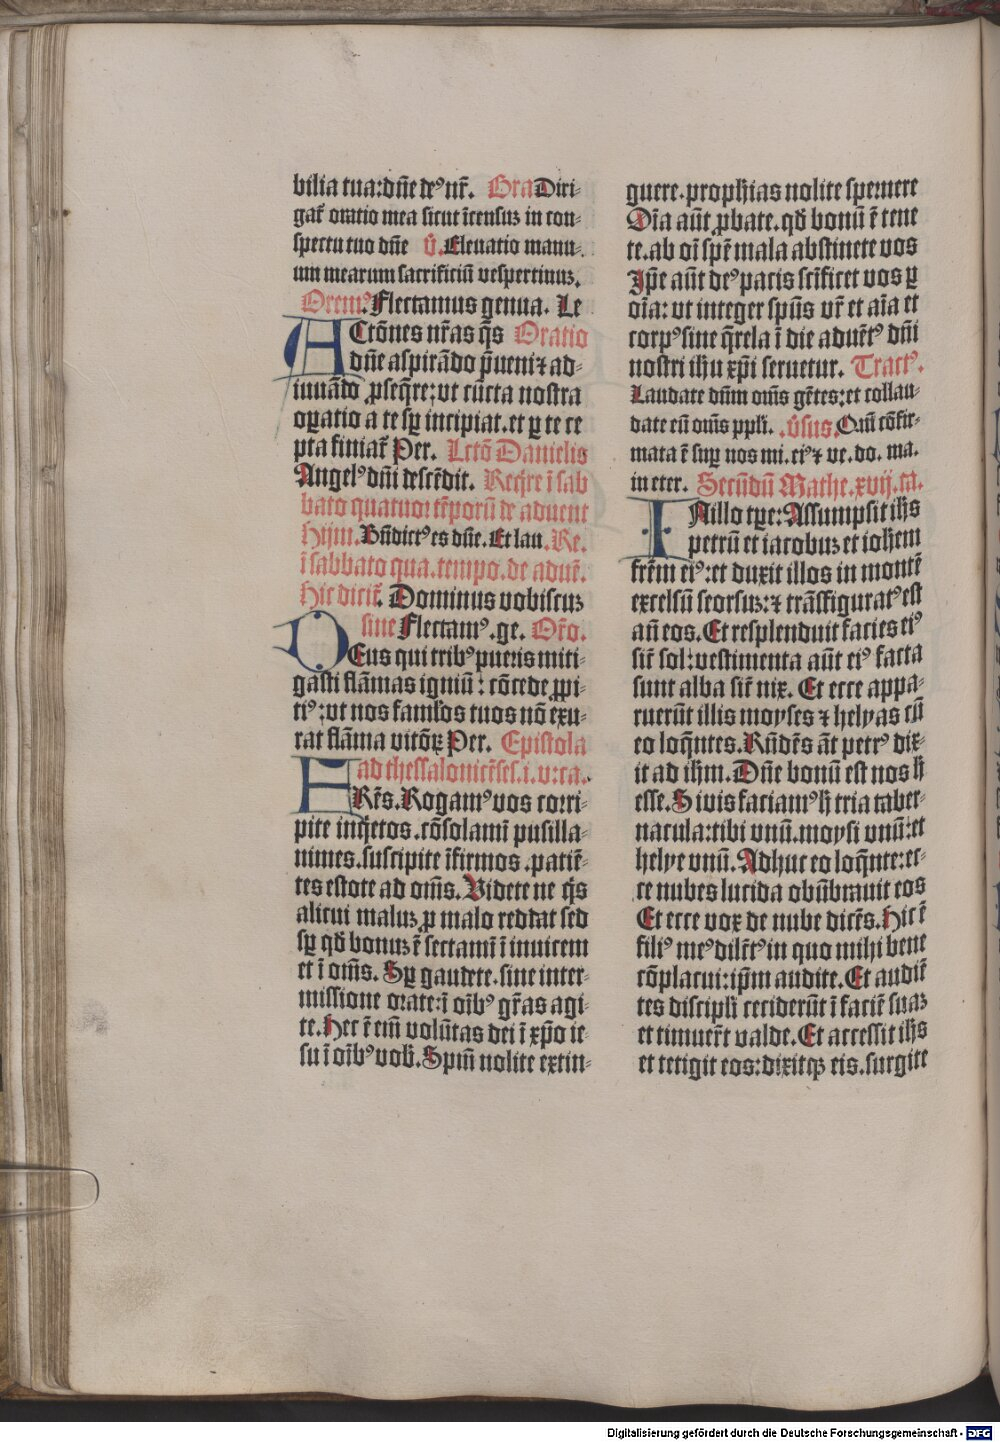 bilia tua: dn̄e de⁹ nr̄. Gra Diri-
gat̄ oratio mea sicut īcensuꝫ in con-
spectu tuo dn̄e v̄. Eleuatio manu-
um mearum sacrificiū vespertinuꝫ.
Orem⁹. Flectamus genua. Le
Actōnes nr̄as q̄s Oratio
dn̄e aspirādo p̄ueni ⁊ ad-
iuuādo ꝓseq̄re: vt cūcta nostra
oꝑatio a te sꝑ incipiat. et ꝑ te ce
pta finiat̄ Per. Lctō Danielis
Angel⁹ dn̄i descēdit. Req̄re ī sab
bato quatuor tēporū de aduent
Hijm. Bn̄dict⁹ es dn̄e. Et lau. Re.
ī sabbato qua. tempo. de aduē.
Hic dicit̄. Dominus vobiscuꝫ
sine Flectam⁹. ge. Or̄o.
Deus qui trib⁹ pueris miti-
gasti flāmas igniū: cōcede ꝓpi-
ti⁹: vt nos famlōs tuos nō exu-
rat flāma vitōꝝ Per. Epistola
ad thessalonicēses. i. v: ca.
Frēs. Rogam⁹ vos corri-
pite inq̄etos. cōsolamī pusilla-
nimes. suscipite īfirmos. patiē-
tes estote ad om̄s. Videte ne q̄s
alicui maluꝫ ꝓ malo reddat sed
sꝑ qd̄ bonuꝫ ē sectamī ī inuicem
et ī om̄s. Sꝑ gaudete. sine inter-
missione orate: ī oīb⁹ gr̄as agi-
te. Hec ē em̄ volūtas dei ī xp̄o ie-
su ī oīb⁹ vob̄. Spm̄ nolite extin-
guere. proph̄ias nolite spernere
Oīa aūt ꝓbate. qd̄ bonū ē tene
te. ab oī spē mala abstinete vos
Ip̄e aūt de⁹ pacis sc̄ificet vos ꝑ
oīa: vt integer spūs vr̄ et aīa et
corp⁹ sine q̄rela ī die aduēt⁹ dn̄i
nostri ihu xp̄i seruetur. Tract⁹.
Laudate dn̄m om̄s gētes: et collau-
date eū om̄s ppl̄i. v̄sus. Qm̄ cōfir-
mata ē suꝑ nos mi. ei⁹ ⁊ ve. do. ma.
in eter. Secūdū Mathe. xvij. ca.
In illo tꝑe: Assumpsit ih̄s
petrū et iacobuꝫ et ioh̄em
frēm ei⁹: et duxit illos in montē
excelsū seorsuꝫ: ⁊ trāsfigurat⁹ est
an̄ eos. Et resplenduit facies ei⁹
sic̄ sol: vestimenta aūt ei⁹ facta
sunt alba sic̄ nix. Et ecce appa-
ruerūt illis moyses ⁊ helyas cū
eo loq̄ntes. Rn̄dēs āt petr⁹ dix-
it ad ih̄m. Dn̄e bonū est nos h̄
esse. Si vis faciam⁹ h̄ tria taber-
nacula: tibi vnū. moysi vnū: et
helye vnū. Adhuc eo loq̄nte: ec-
ce nubes lucida obūbrauit eos
Et ecce vox de nube dicēs. Hic ē
fili⁹ me⁹ dilēt⁹ in quo mihi bene
cōplacui: ip̄m audite. Et audiē
tes discipl̄i ceciderūt ī faciē suaꝫ
et timuer̄t valde. Et accessit ih̄s
et tetigit eos: dixitqꝫ eis. surgite
Digitalisierung gefördert durch die Deutsche Forschungsgemeinschaft - DFG